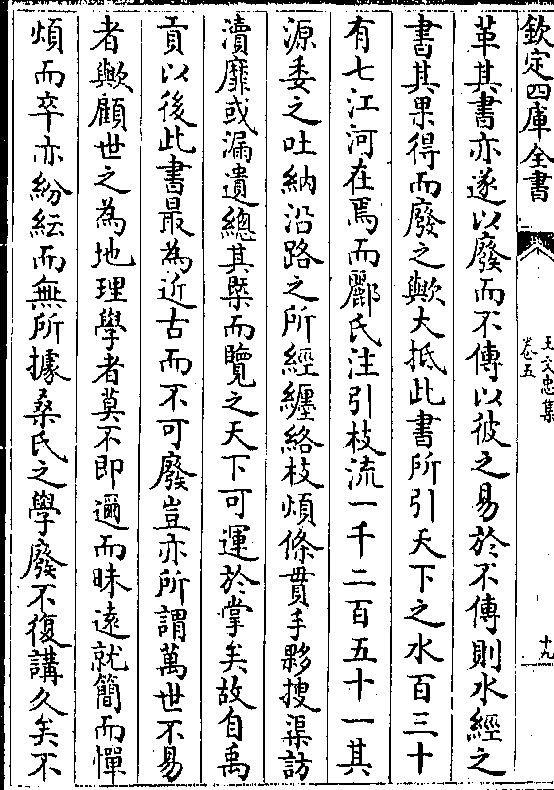 欽定四庫全書
王文忠集
卷五
十九
革其書亦遂以廢而不傳以彼之易於不傳則水經之
書其果得而廢之歟大抵此書所引天下之水百三十
有七江河在焉而酈氏注引枝流一千二百五十一其
源委之吐納沿路之所經纒絡枝煩條貫手夥搜渠訪
瀆靡或漏遺總其槩而覽之天下可運於掌矣故自禹
貢以後此書最為近古而不可廢豈亦所謂萬世不易
者歟顧世之為地理學者莫不即邇而昧逺就簡而憚
煩而卒亦紛紜而無所據桑氏之學廢不復講久矣不